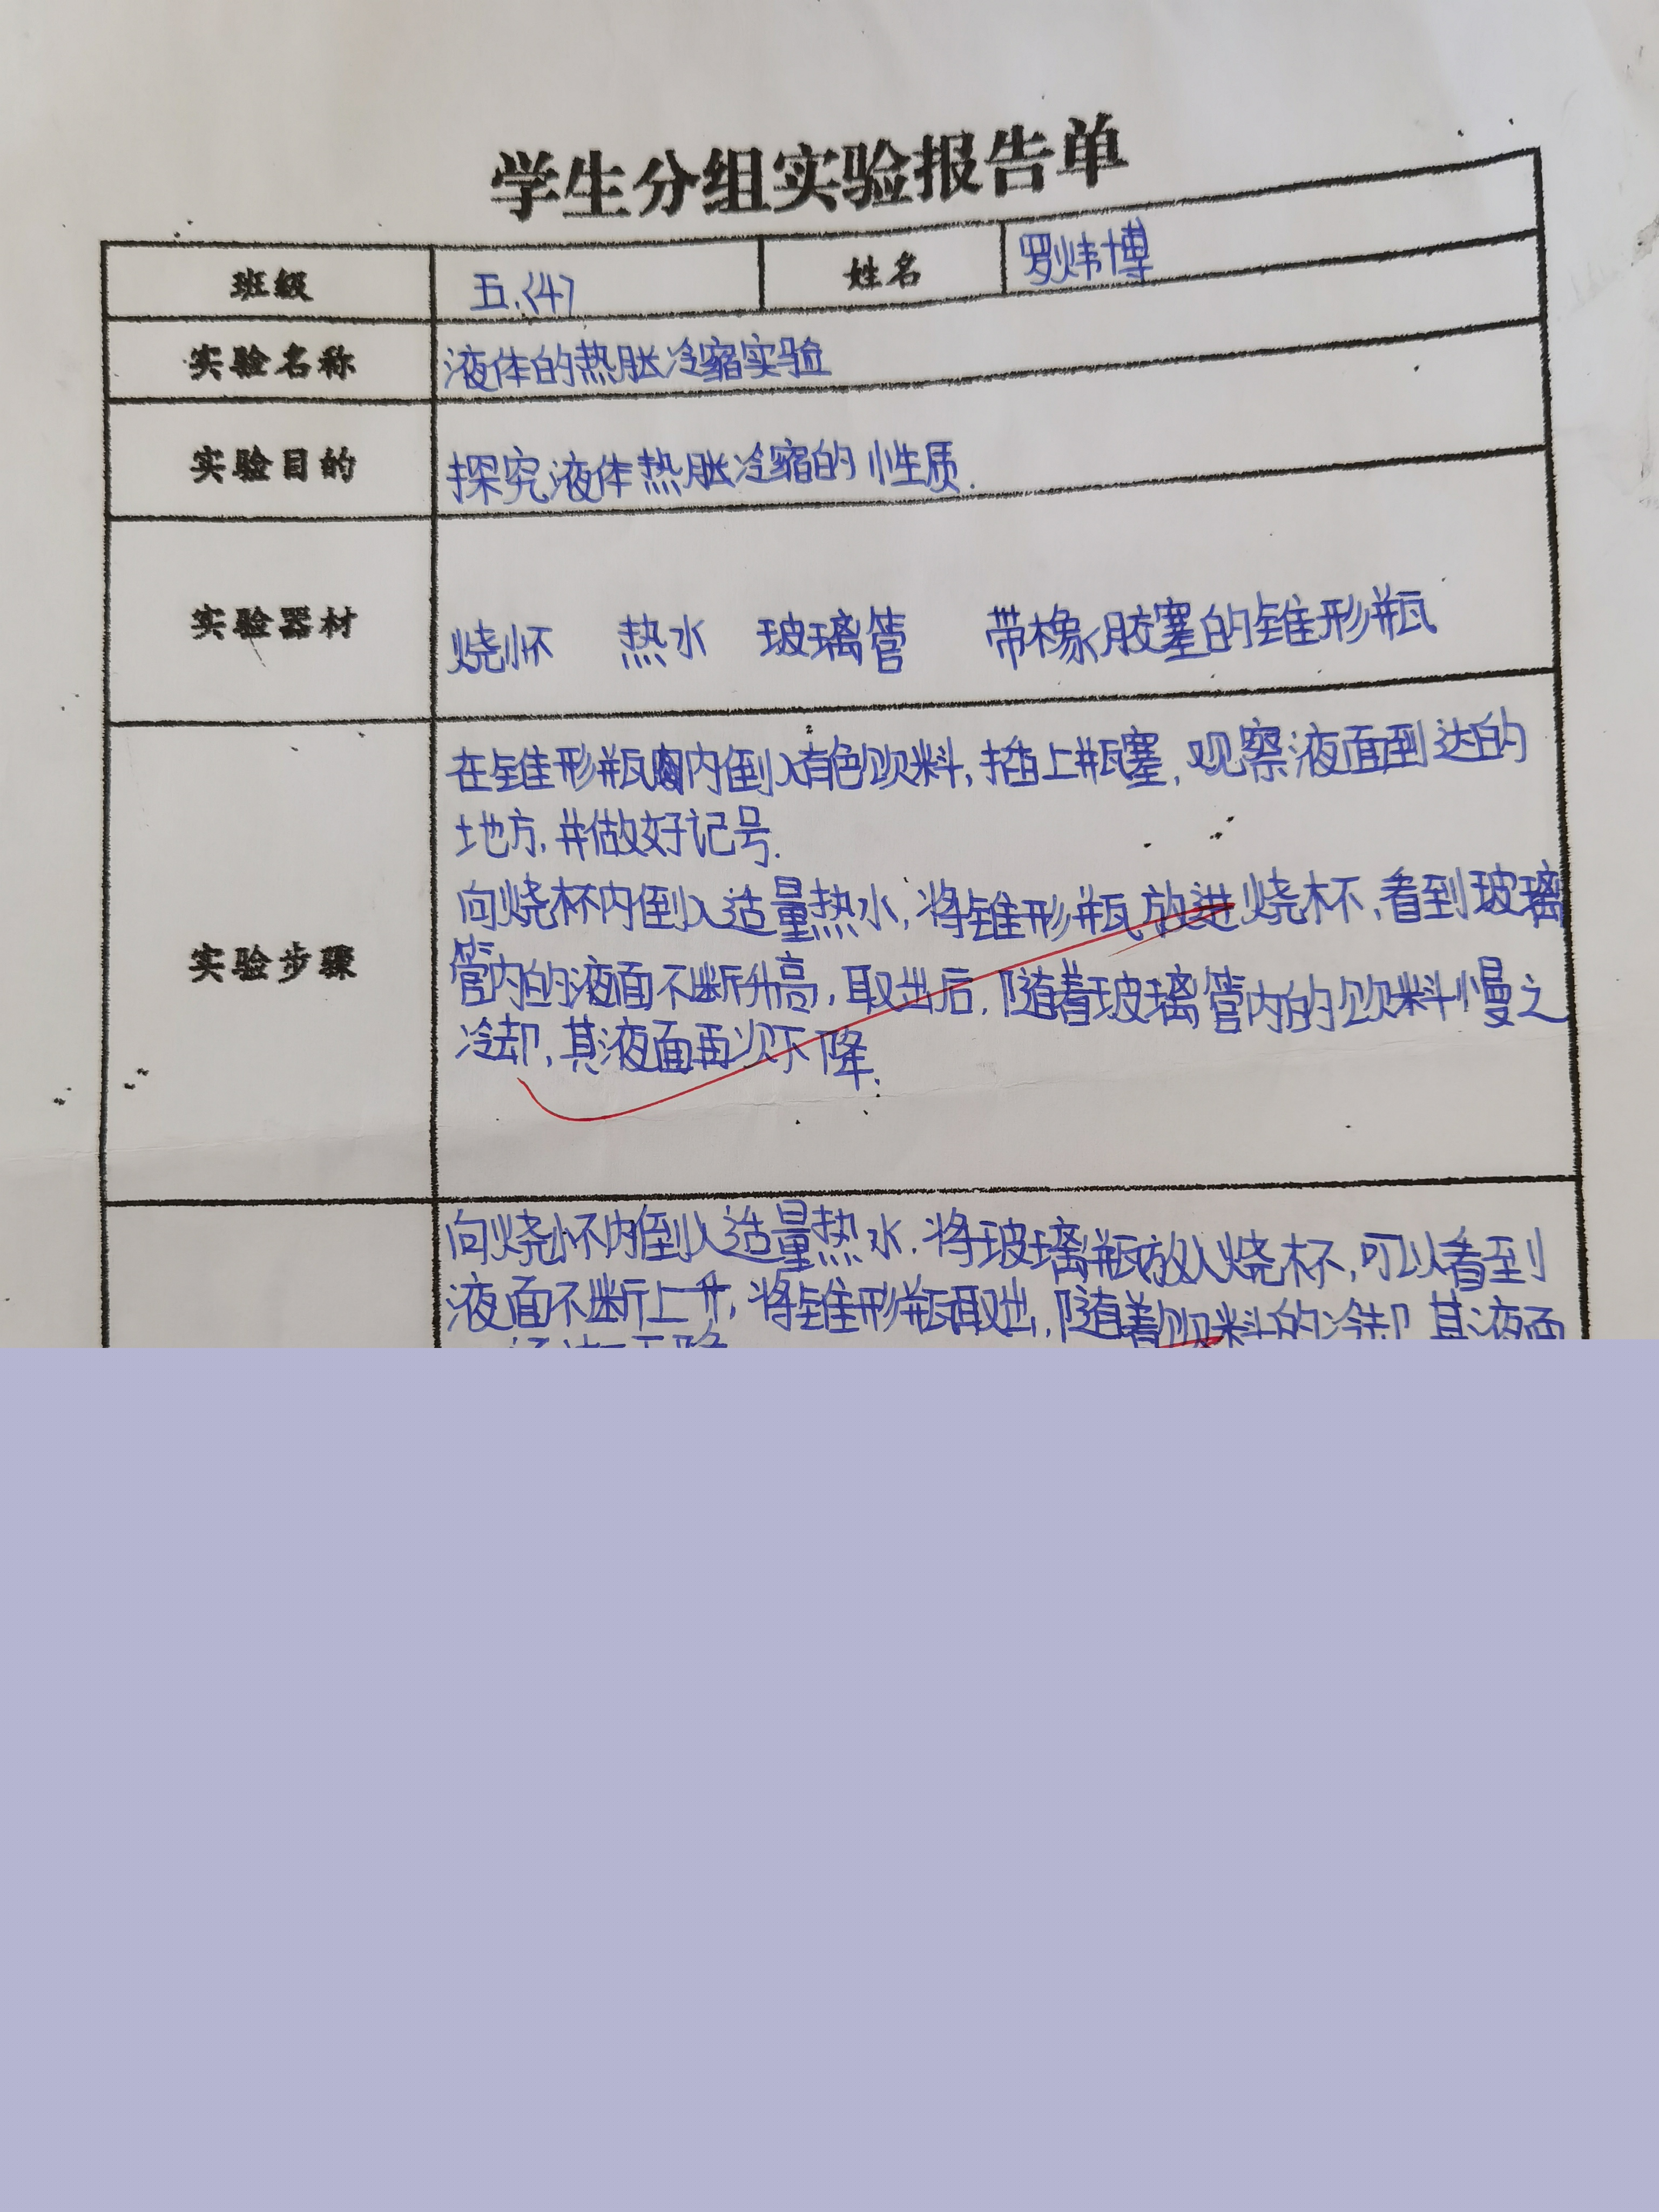 学生分组实验报告单
班级 五.(4) 姓名 罗炜博
实验名称 液体的热胀冷缩实验
实验目的 探究液体热胀冷缩的性质.
实验器材 烧怀 热水 玻璃管 带橡胶塞的锥形瓶
实验步骤
在锥形瓶内倒入有色饮料,插上瓶塞,观察液面到达的
地方,并做好记号.
向烧杯内倒入适量热水,将锥形瓶放进烧杯,看到玻璃
管内的液面不断升高,取出后,随着玻璃管内的饮料慢之
冷却,其液面再次下降.
向烧怀内倒入适量热水.将玻璃瓶放入烧杯,可以看到
液面不断上升,将锥形瓶取出,随着饮料的冷却,其液面